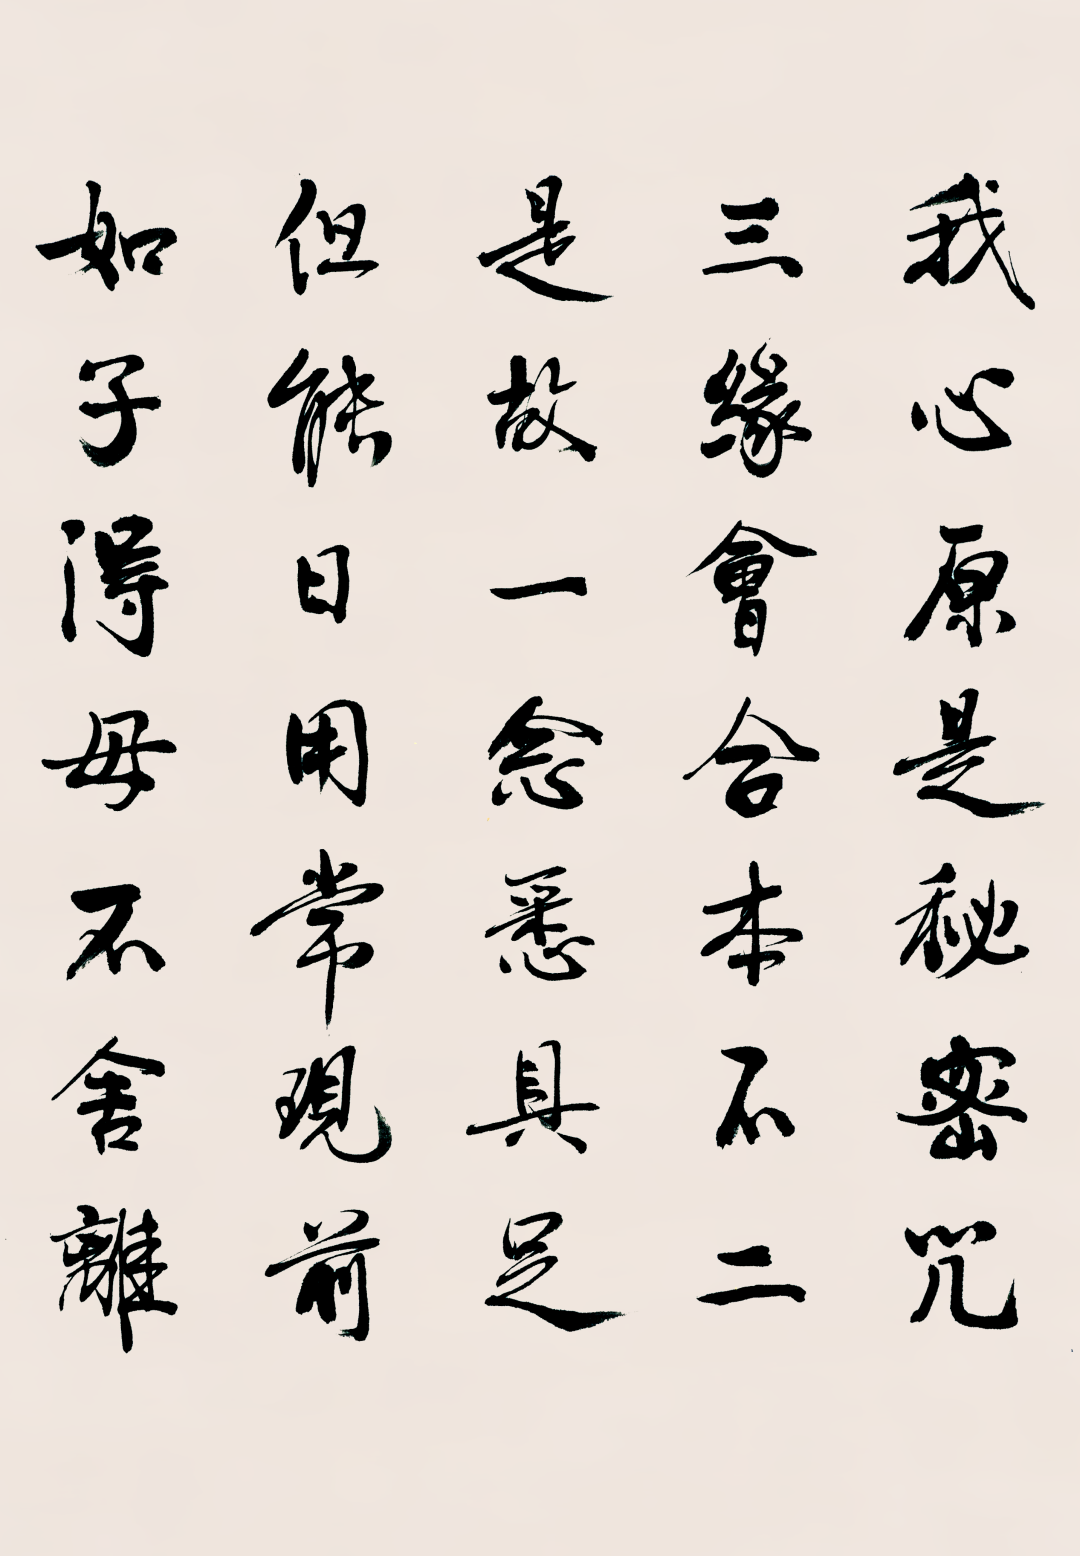 我心原是秘密咒
三緣會合本不二
是故一念悉具足
但能日用常現前
如子得母不舍離